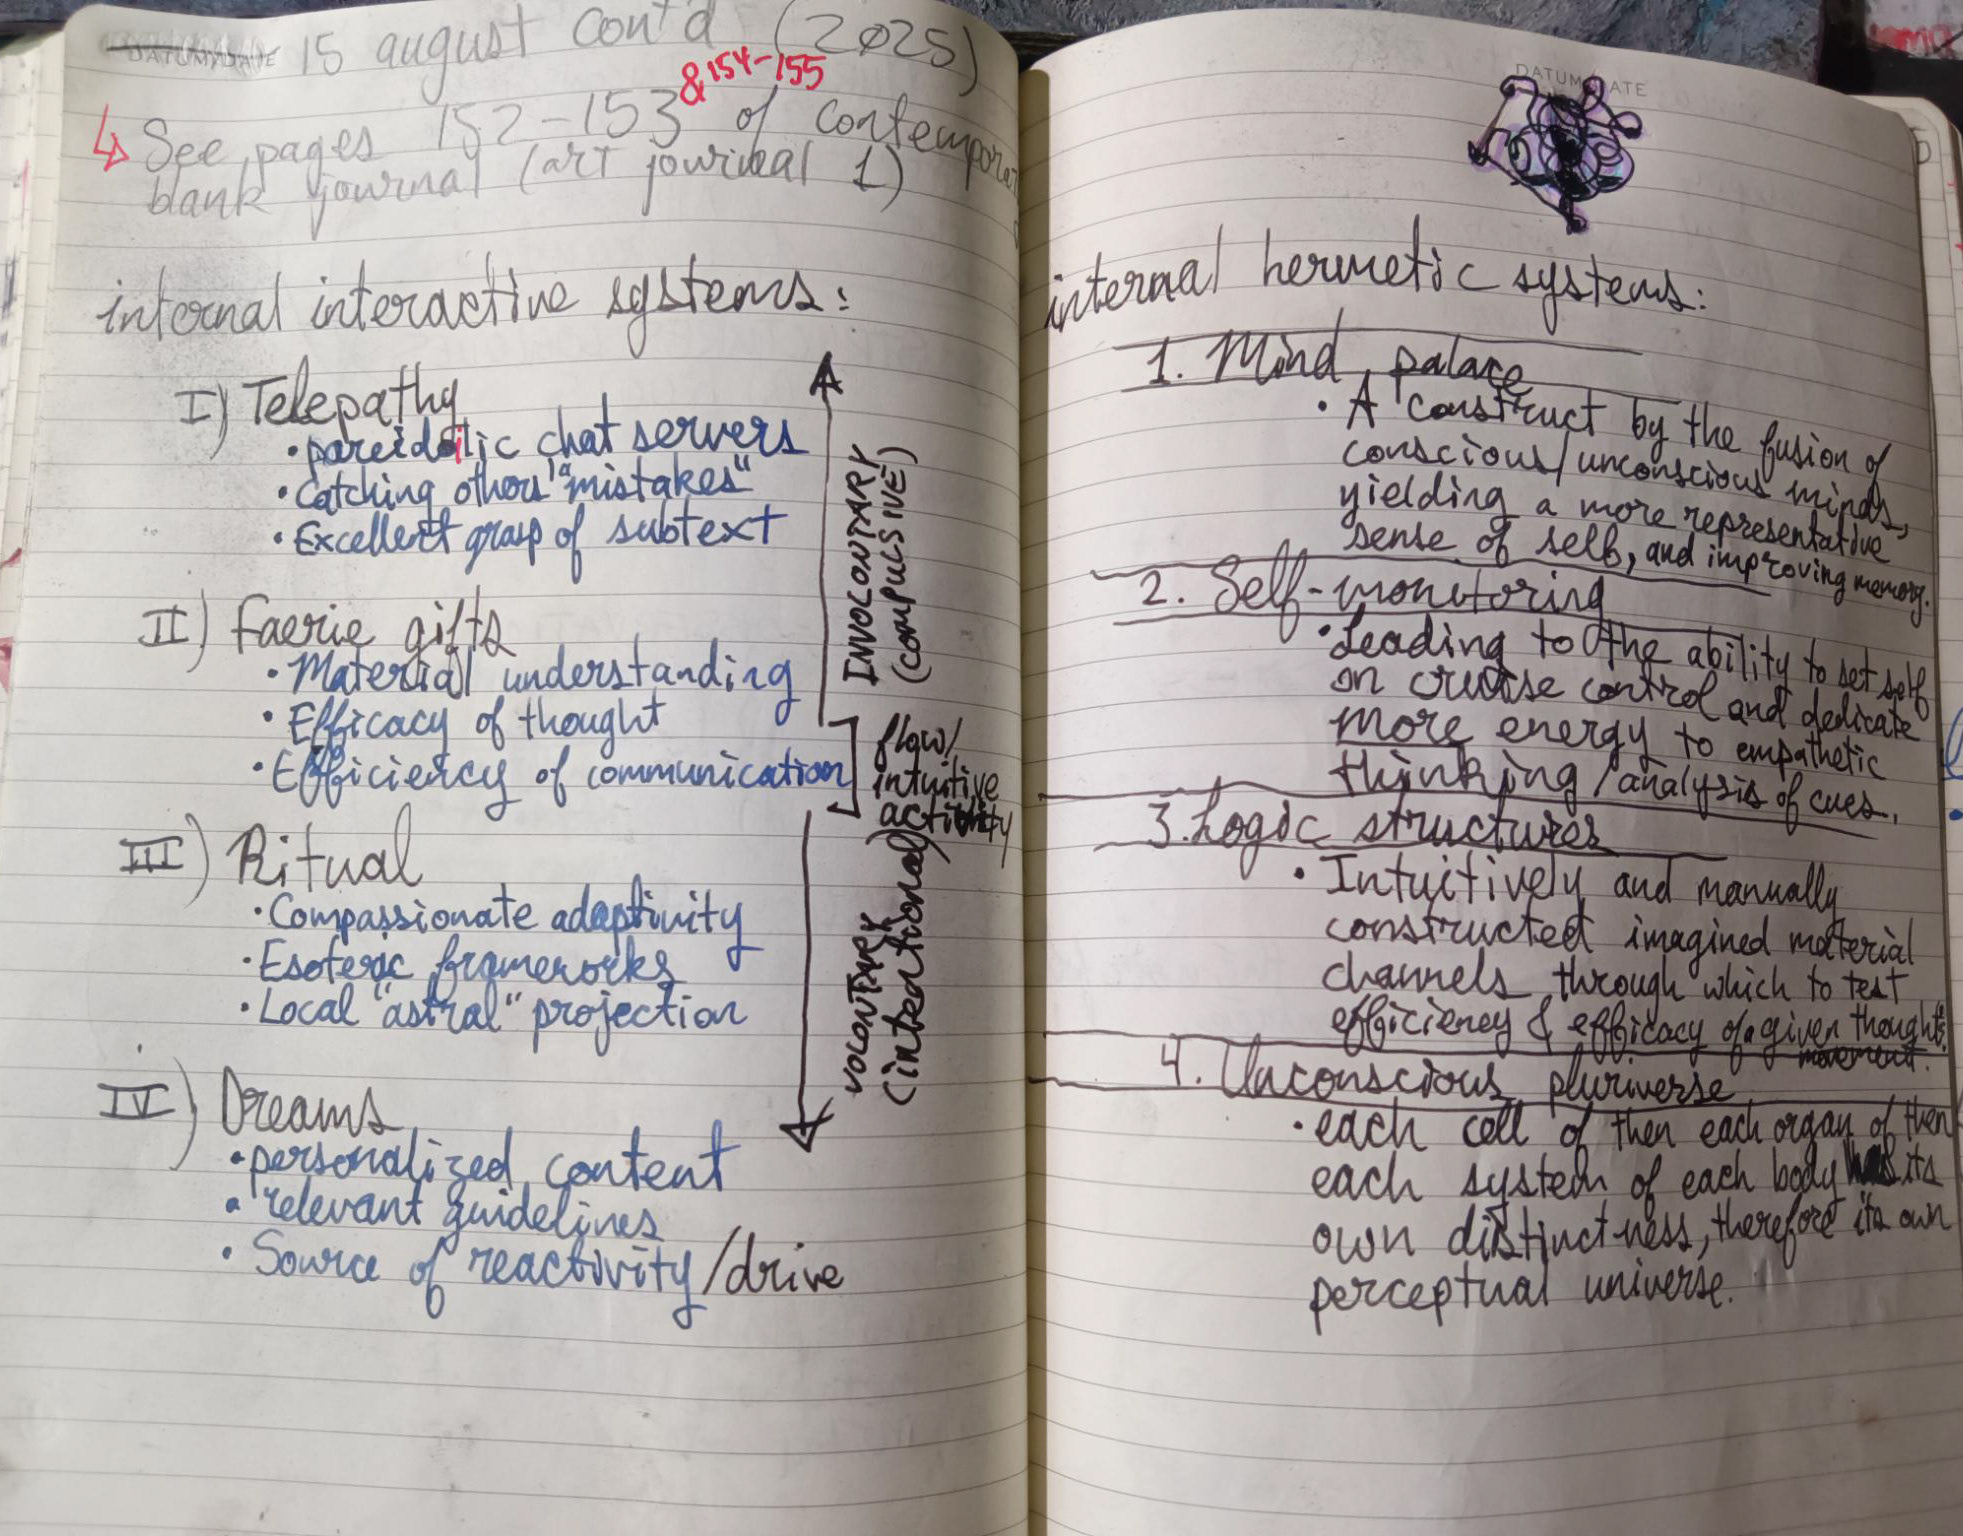 DATUM/DATE 15 august con'd (2025)
↳ See pages 152-153 & 154-155 of contempora
blank journal (art journal 1)
internal interactive systems:
I) Telepathy
• pareidolic chat servers
• catching others' "mistakes"
• Excellent grasp of subtext
II) Faerie gifts
• Material understanding
• Efficacy of thought
• Efficiciency of communication
III) Ritual
• Compassionate adaptivity
• Esoteric frameworks
• Local "astral" projection
IV) Dreams
• personalized content
• relevant guidelines
• Source of reactivity/drive
INVOLONTARY
(COMPULSIVE)
flow/
intuitive
activity
VOLONTARY
(intentional)
DATUM/DATE
internal hermetic systems:
1. Mind palace
• A construct by the fusion of
conscious/unconscious minds,
yielding a more representative
sense of self, and improving memory.
2. Self-monitoring
• Leading to the ability to set self
on cruise control and dedicate
more energy to empathetic
thinking/analysis of cues.
3. Logic structures
• Intuitively and manually
constructed imagined material
channels through which to test
efficiency & efficacy of a given thought's
movement.
4. Unconscious pluriverse
• each cell of then each organ of then
each system of each body has its
own distinctness, therefore its own
perceptual universe.